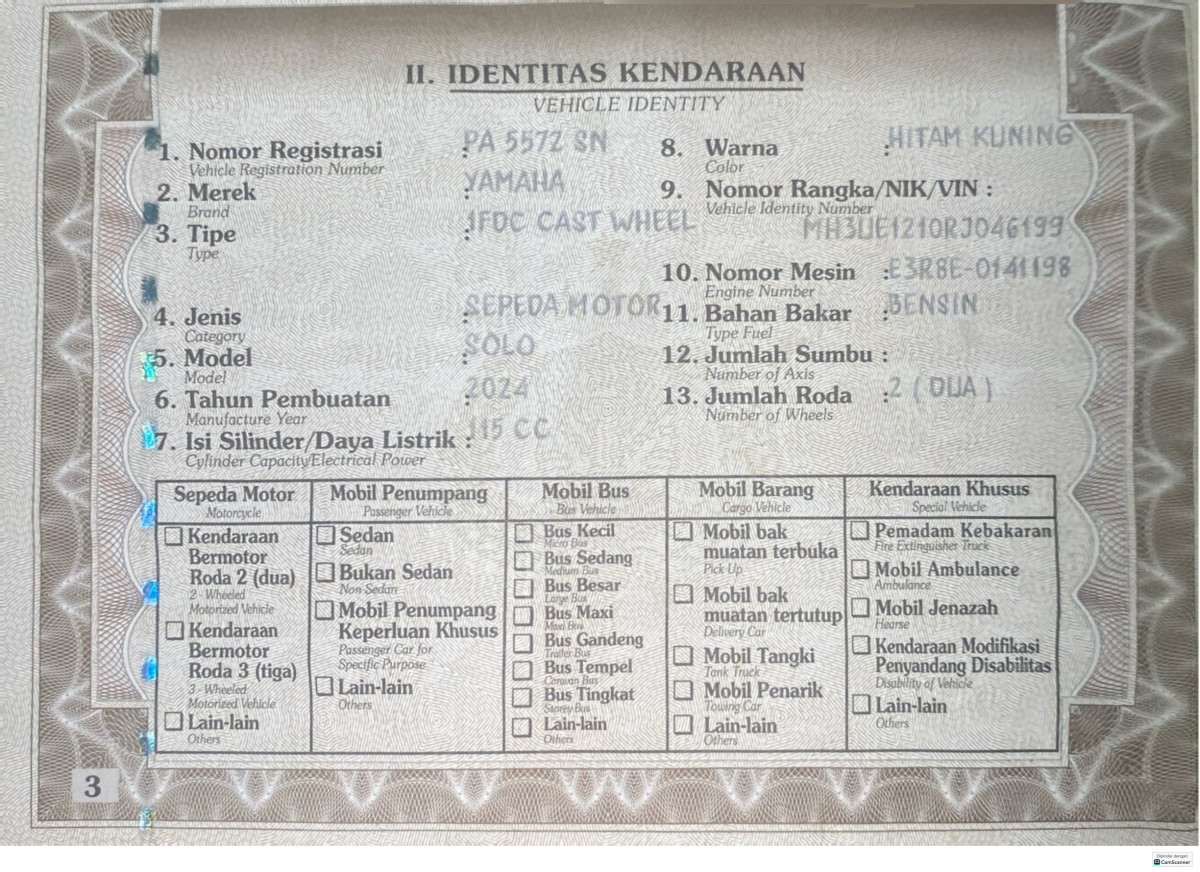 II. IDENTITAS KENDARAAN
VEHICLE IDENTITY
1. Nomor Registrasi : PA 5572 SN
Vehicle Registration Number
2. Merek : YAMAHA
Brand
3. Tipe : 1FDC CAST WHEEL
Type
4. Jenis : SEPEDA MOTOR
Category
5. Model : SOLO
Model
6. Tahun Pembuatan : 2024
Manufacture Year
7. Isi Silinder/Daya Listrik : 115 CC
Cylinder Capacity/Electrical Power
8. Warna : HITAM KUNING
Color
9. Nomor Rangka/NIK/VIN :
Vehicle Identity Number
MH3UE1210RJ046199
10. Nomor Mesin : E3R8E-0141198
Engine Number
11. Bahan Bakar : BENSIN
Type Fuel
12. Jumlah Sumbu :
Number of Axis
13. Jumlah Roda : 2 ( DUA )
Number of Wheels
Sepeda Motor
Motorcycle
Kendaraan
Bermotor
Roda 2 (dua)
2 - Wheeled
Motorized Vehicle
Kendaraan
Bermotor
Roda 3 (tiga)
3 - Wheeled
Motorized Vehicle
Lain-lain
Others
Mobil Penumpang
Passenger Vehicle
Sedan
Sedan
Bukan Sedan
Non Sedan
Mobil Penumpang
Keperluan Khusus
Passenger Car for
Specific Purpose
Lain-lain
Others
Mobil Bus
Bus Vehicle
Bus Kecil
Micro Bus
Bus Sedang
Medium Bus
Bus Besar
Large Bus
Bus Maxi
Maxi Bus
Bus Gandeng
Trailer Bus
Bus Tempel
Caravan Bus
Bus Tingkat
Storey Bus
Lain-lain
Others
Mobil Barang
Cargo Vehicle
Mobil bak
muatan terbuka
Pick Up
Mobil bak
muatan tertutup
Delivery Car
Mobil Tangki
Tank Truck
Mobil Penarik
Towing Car
Lain-lain
Others
Kendaraan Khusus
Special Vehicle
Pemadam Kebakaran
Fire Extinguisher Truck
Mobil Ambulance
Ambulance
Mobil Jenazah
Hearse
Kendaraan Modifikasi
Penyandang Disabilitas
Disability of Vehicle
Lain-lain
Others
3
Dipindai dengan
CamScanner